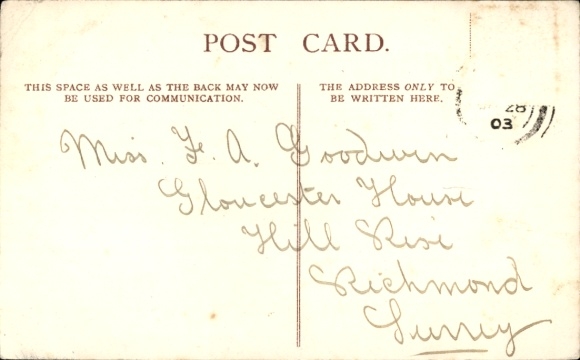 POST CARD.
THIS SPACE AS WELL AS THE BACK MAY NOW
BE USED FOR COMMUNICATION.
THE ADDRESS ONLY TO
BE WRITTEN HERE.
28
03
Miss. F. A. Goodwin
Gloucester House
Hill Rise
Richmond
Surrey